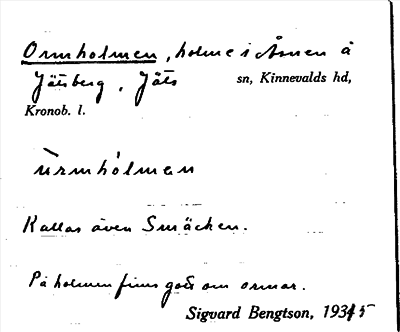 Ormholmen, holme i Åsnen å
Jätsberg, Jäts sn, Kinnevalds hd,
Kronob. l.
ùrmhólman
Kallas även Smäcken.
På holmen finns gott om ormar.
Sigvard Bengtson, 1935